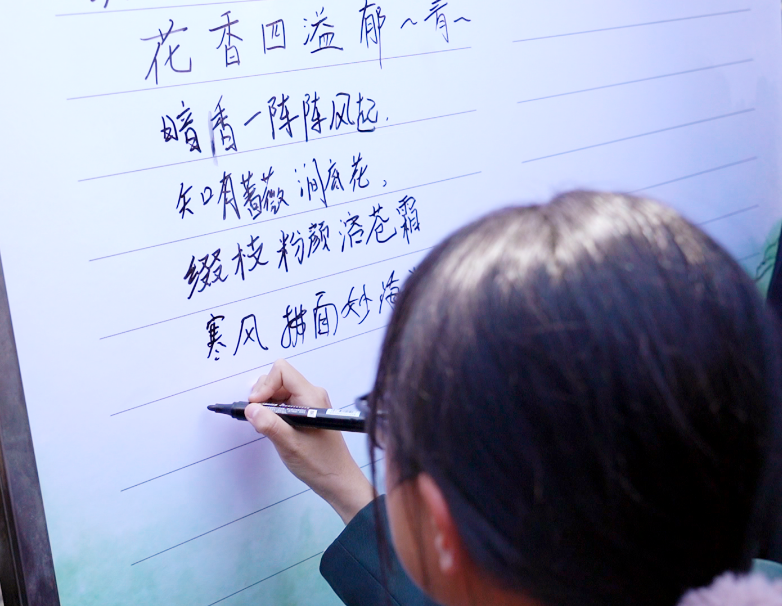 花香四溢郁~青~
暗香一阵阵风起.
知有蔷薇涧底花,
缀枝粉颜溶苍霜
寒风拂面妙